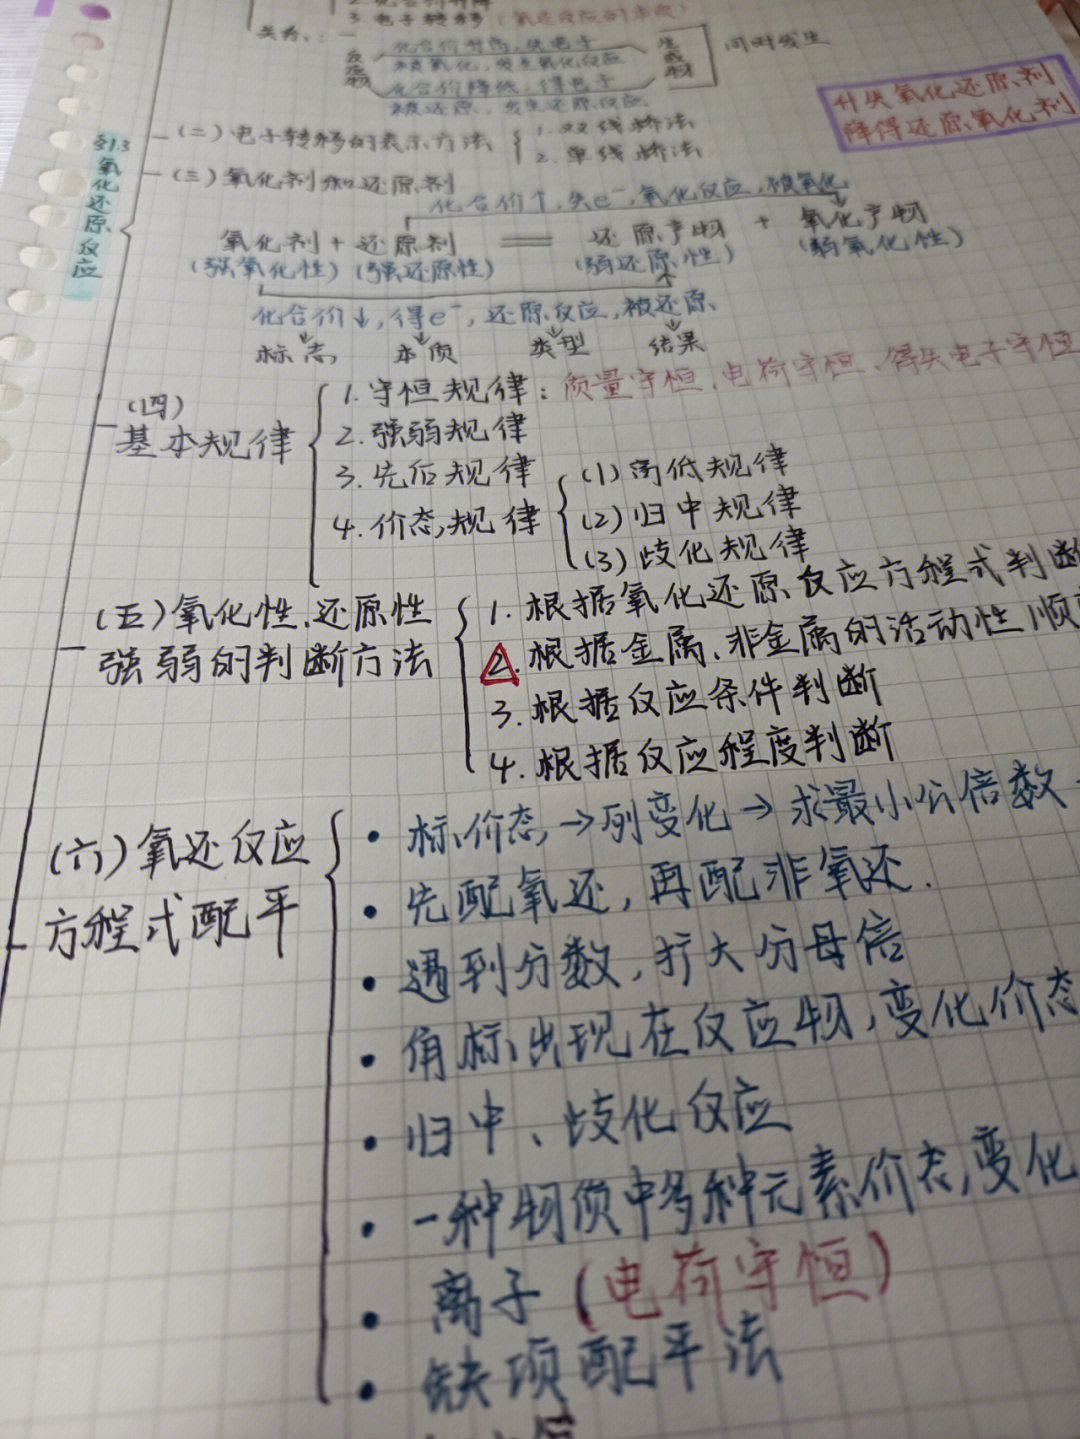 2. 化合价升降
3. 电子转移(氧还反应的本质)
关系:
反应物
化合价升高,失电子
被氧化,发生氧化反应
化合价降低,得电子
被还原,发生还原反应
生成物
同时发生
升失氧化还原剂
降得还原氧化剂
§1.3 氧化还原反应
(二)电子转移的表示方法
1. 双线桥法
2. 单线桥法
(三)氧化剂和还原剂
化合价↑,失e⁻,氧化反应,被氧化
氧化剂 + 还原剂 == 还原产物 + 氧化产物
(强氧化性) (强还原性) (弱还原性) (弱氧化性)
化合价↓,得e⁻,还原反应,被还原
标志 本质 类型 结果
(四)
基本规律
1. 守恒规律:质量守恒、电荷守恒、得失电子守恒
2. 强弱规律
3. 先后规律
4. 价态规律
(1)高低规律
(2)归中规律
(3)歧化规律
(五)氧化性、还原性
强弱的判断方法
1. 根据氧化还原反应方程式判断
2. 根据金属、非金属的活动性顺
3. 根据反应条件判断
4. 根据反应程度判断
(六)氧还反应
方程式配平
• 标价态→列变化→求最小公倍数
• 先配氧还,再配非氧还.
• 遇到分数,扩大分母倍
• 角标出现在反应物,变化价态
• 归中、歧化反应
• 一种物质中多种元素价态变化
• 离子(电荷守恒)
• 缺项配平法